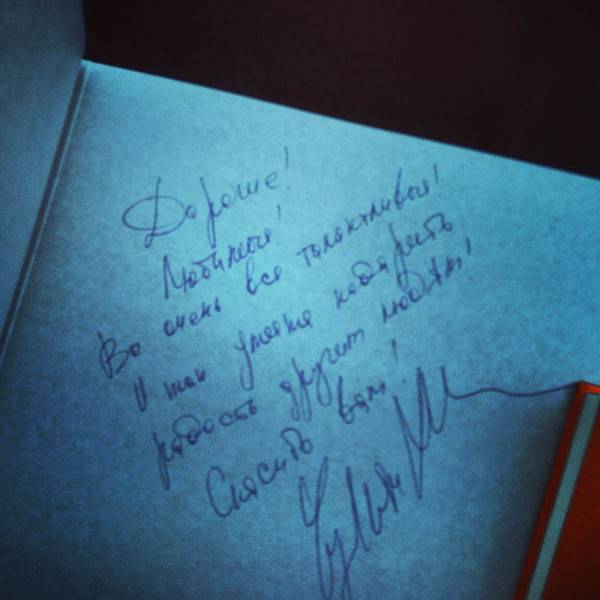 Дорогие!
Любимые!
Вы очень все талантливые!
И так умеете подарить
радость другим людям!
Спасибо вам!